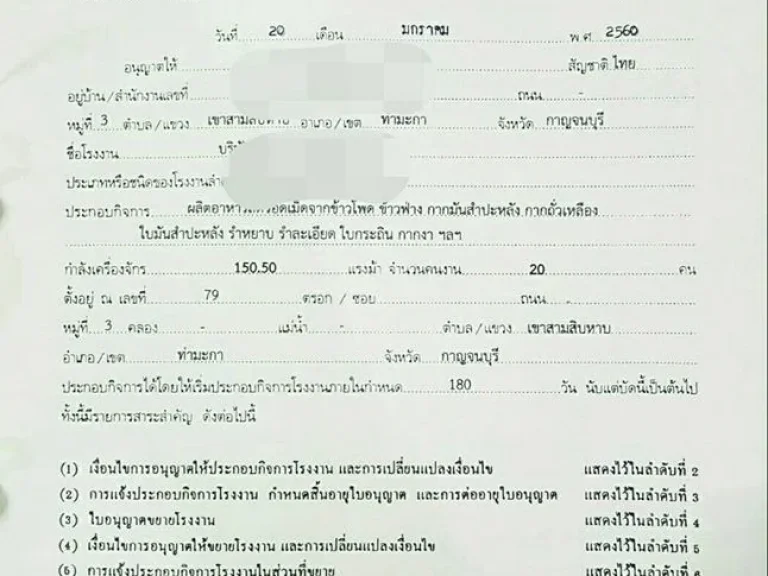 วันที่ 20 เดือน มกราคม พ.ศ 2560
อนุญาตให้ สัญชาติ ไทย
อยู่บ้าน/สำนักงานเลขที่ ถนน -
หมู่ที่ 3 ตำบล/แขวง เขาสามสิบหาบ อำเภอ/เขต ท่ามะกา จังหวัด กาญจนบุรี
ชื่อโรงงาน
ประเภทหรือชนิดของโรงงาน
ประกอบกิจการ ผลิตอาหาร เม็ดจากข้าวโพด ข้าวฟ่าง กากมันสำปะหลัง กากถั่วเหลือง
ใบมันสำปะหลัง รำหยาบ รำละเอียด ใบกระถิน กากงา ฯลฯ
กำลังเครื่องจักร 150.50 แรงม้า จำนวนคนงาน 20 คน
ตั้งอยู่ ณ เลขที่ 79 ตรอก / ซอย ถนน -
หมู่ที่ 3 คลอง - แม่น้ำ - ตำบล/แขวง เขาสามสิบหาบ
อำเภอ/เขต ท่ามะกา จังหวัด กาญจนบุรี
ประกอบกิจการได้โดยให้เริ่มประกอบกิจการโรงงานภายในกำหนด 180 วัน นับแต่บัดนี้เป็นต้นไป
ทั้งนี้มีรายการสาระสำคัญ ดังต่อไปนี้
(1) เงื่อนไขการอนุญาตให้ประกอบกิจการโรงงาน และการเปลี่ยนแปลงเงื่อนไข แสดงไว้ในลำดับที่ 2
(2) การแจ้งประกอบกิจการโรงงาน กำหนดสิ้นอายุใบอนุญาต และการต่ออายุใบอนุญาต แสดงไว้ในลำดับที่ 3
(3) ใบอนุญาตขยายโรงงาน แสดงไว้ในลำดับที่ 4
(4) เงื่อนไขการอนุญาตให้ขยายโรงงาน และการเปลี่ยนแปลงเงื่อนไข แสดงไว้ในลำดับที่ 5
(5) การแจ้งประกอบกิจการโรงงานในส่วนที่ขยาย แสดงไว้ในลำดับที่ 6